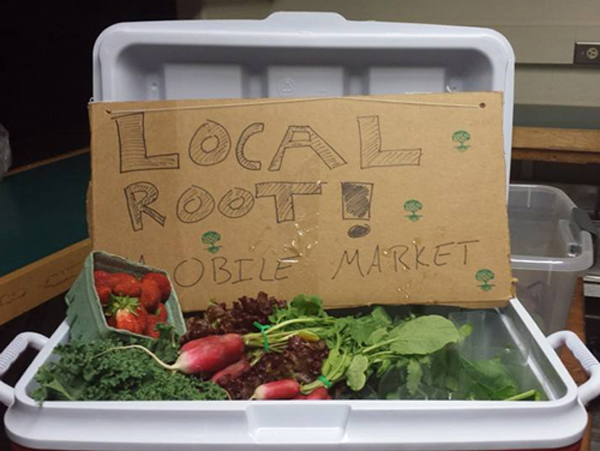 LOCAL
ROOT!
MOBILE MARKET